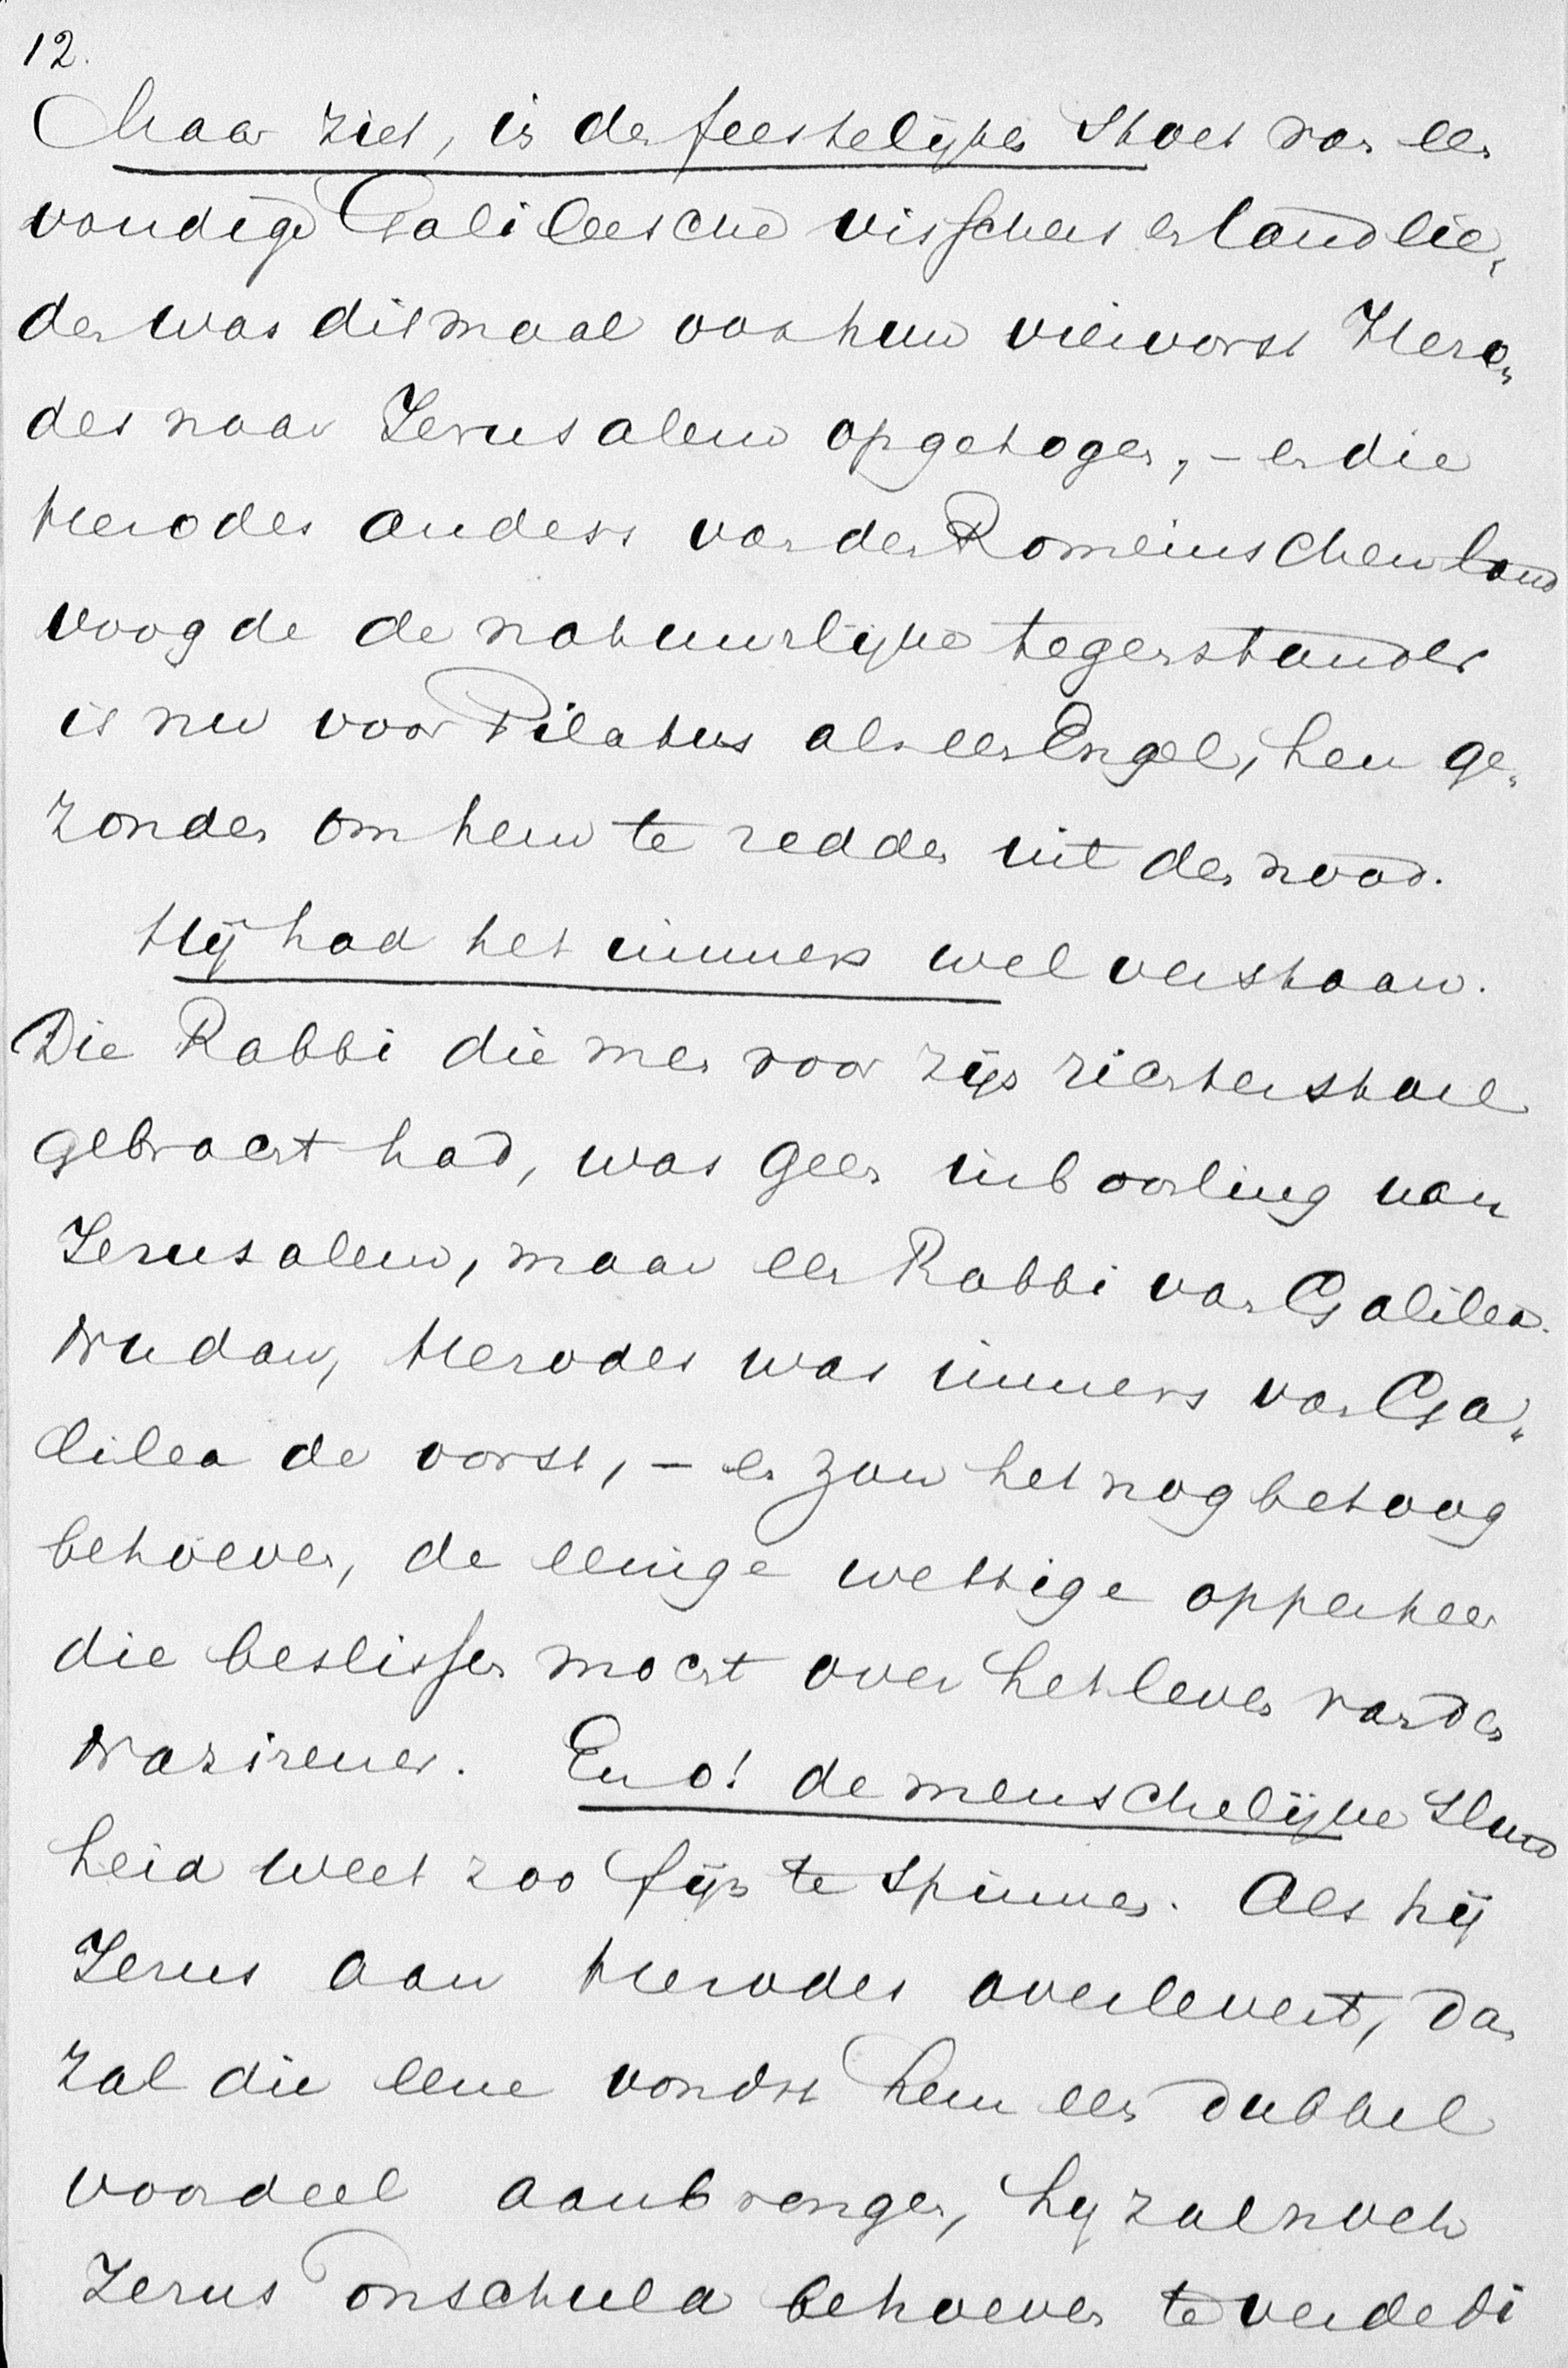 12.
Maar ziet, in den feestelijken stoet van een
voudige Galileesche visschers en landlie„
den was ditmaal ook hun viervorst Hero„
des naar Jerusalem opgetogen, – en die
Herodes anders van den Romeinschen land
voogd de de natuurlijke tegenstander
is nu voor Pilatus als een Engel, hem ge„
zonden om hem te redden uit den nood.
Hij had het immers wel verstaan.
Die Rabbi die men voor zijn richterstoel
gebracht had, was geen inboorling van
Jerusalem, maar een Rabbi van Galilea.
Nu dan, Herodes was immers van Ga„
lilea de vorst, – en zou het nog betoog
behoeven, de eenige wettige opperheer
die beslissen mocht over het leven van den
Nazirener. En o! de menschelijke slun
heid weet zoo fijn te spinnen. Als hij
Jezus aan Herodes overlevert, dan
zal die eene vondst hem een dubbel
voordeel aanbrengen, hij zal noch
Jezus onschuld behoeven te verdedi